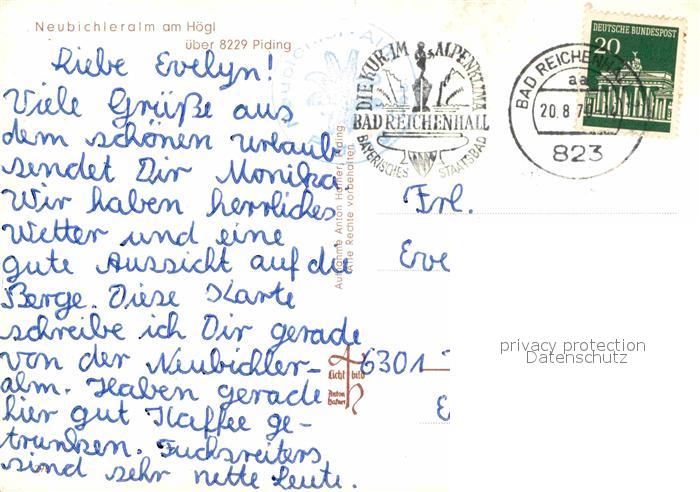 Neubichleralm am Högl
über 8229 Piding
Liebe Evelyn!
Viele Grüße aus
dem schönen Urlaub
sendet Dir Monika
Wir haben herrliches
Wetter und eine
gute Aussicht auf die
Berge. Diese Karte
schreibe ich Dir gerade
von der Neubichler-
alm. Haben gerade
hier gut Kaffee ge-
trunken. Fuchsreiters
sind sehr nette Leute.
DIE KUR IM ALPENKLIMA
BAD REICHENHALL
BAYERISCHES STAATSBAD
BAD REICHENHALL
aa
20.8.7
823
DEUTSCHE BUNDESPOST
20
Aufnahme Anton Hafner, Piding
Alle Rechte vorbehalten
Frl.
Eve
6301
E
Licht bild
Anton
Hafner
privacy protection
Datenschutz